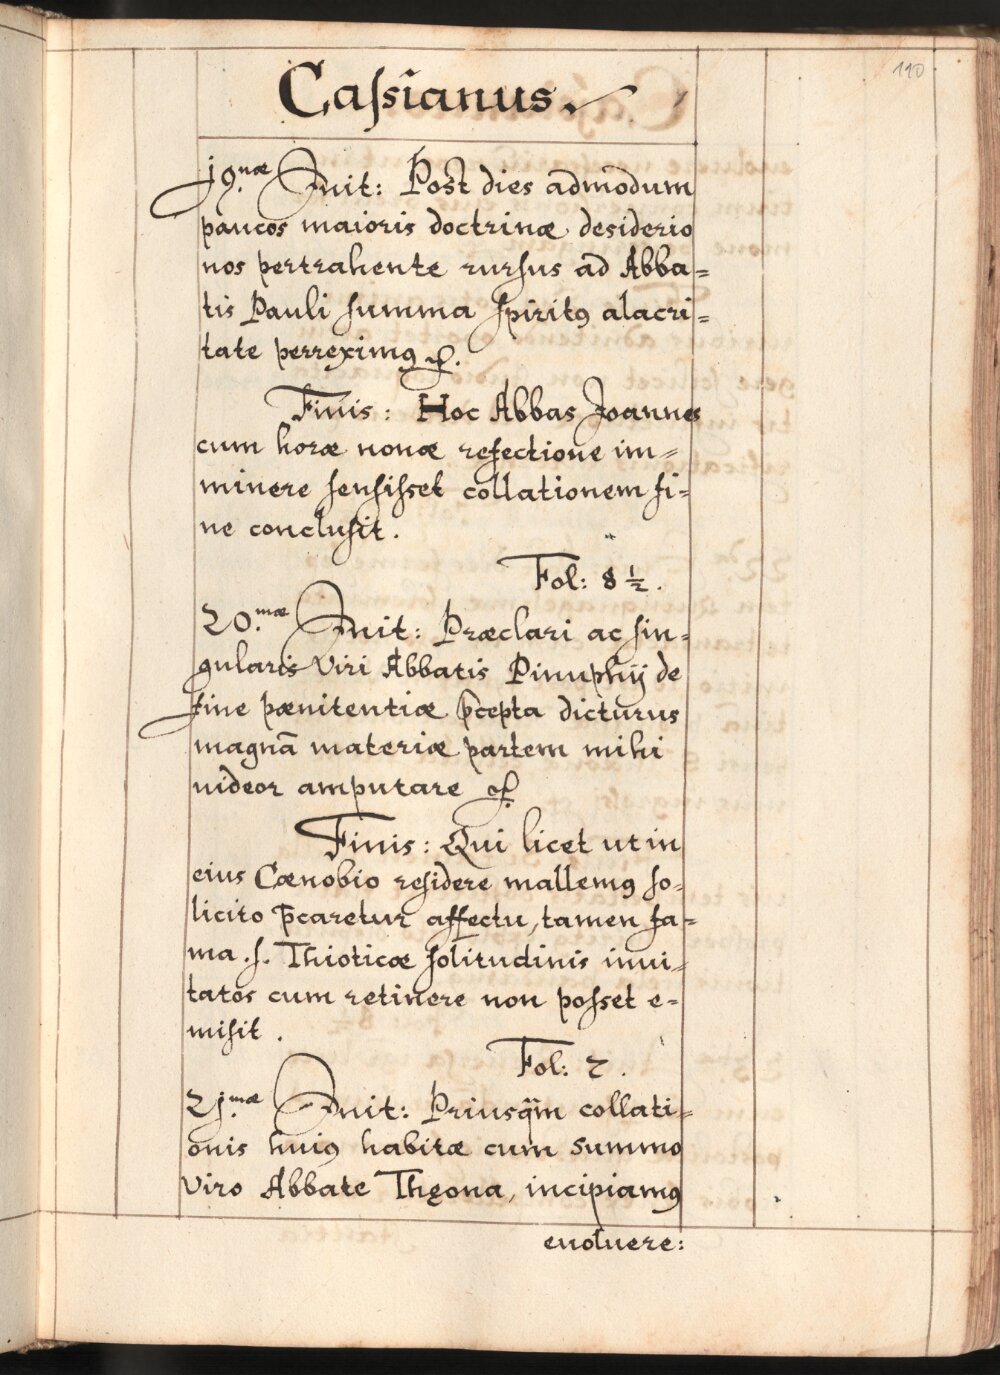 110
Cassianus.
19.næ Init: Post dies admodum
paucos maioris doctrinæ desiderio
nos pertrahente rursus ad Abba=
tis Pauli summa spiritꝰ alacri=
tate perreximꝰ &.
Finis: Hoc Abbas Joannes
cum horæ nonæ refectione im=
minere sensisset collationem fi=
ne conclusit.
Fol: 8 ½.
20.mæ Init: Præclari ac sin=
gularis Viri Abbatis Pinuphij de
fine pænitentiæ p̄cepta dicturus
magnā materiæ partem mihi
uideor amputare &.
Finis: Qui licet ut in
eius Cænobio residere mallemꝰ so=
licito p̄caretur affectu, tamen fa=
ma .s. Thioticæ solitudinis inui=
tatos cum retinere non posset e=
misit.
Fol: 7.
21.mæ Init: Priusq̄m collati=
onis huiꝰ habitæ cum summo
Viro Abbate Theona, incipiamꝰ
euoluere: